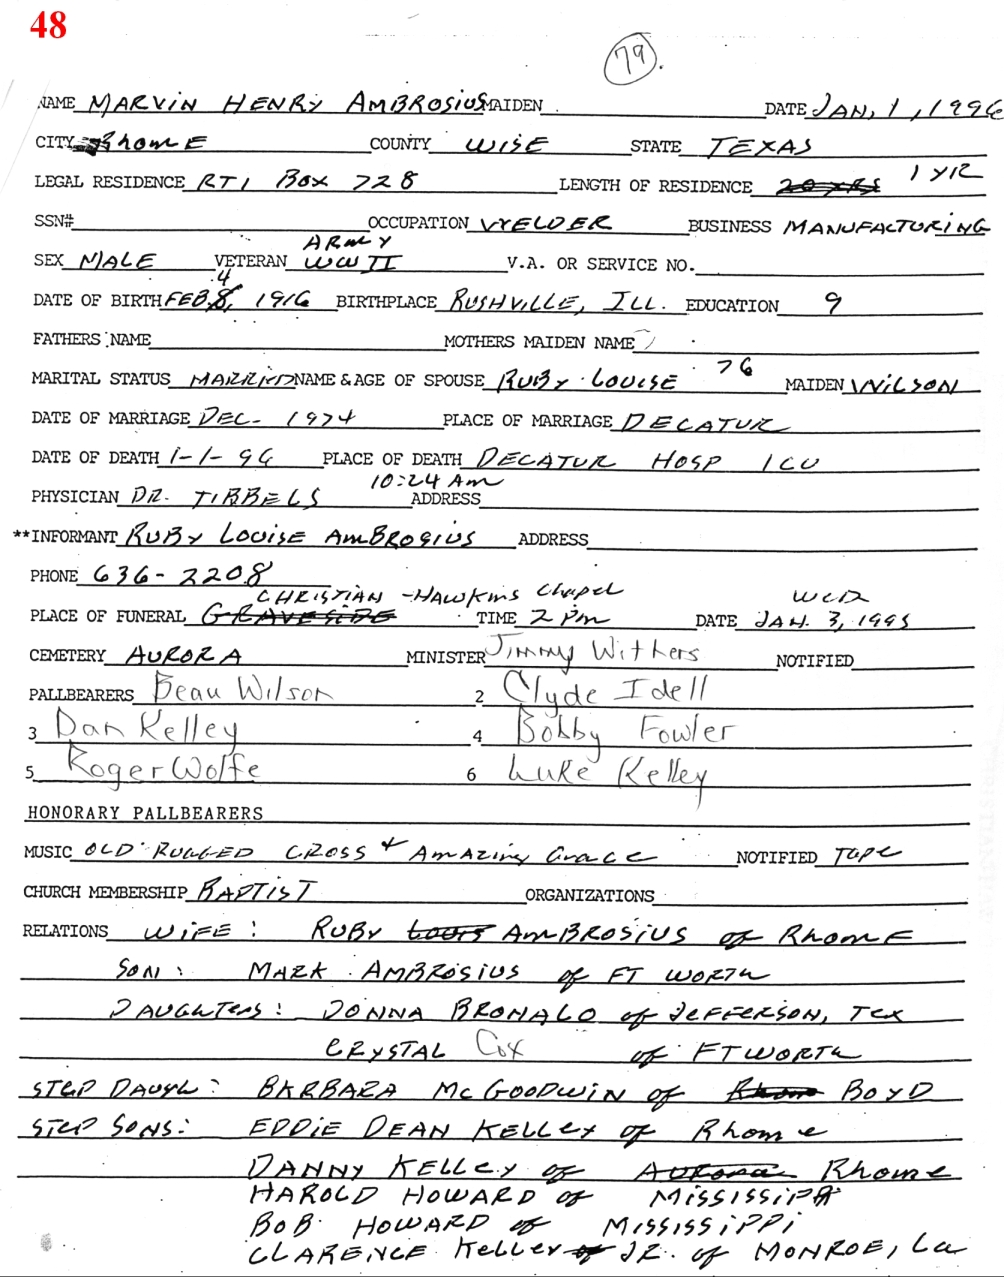 48
79.
NAME MARVIN HENRY AMBROSIUS MAIDEN DATE JAN, 1, 1996
CITY RhomE COUNTY WISE STATE TEXAS
LEGAL RESIDENCE RT1 BOX 728 LENGTH OF RESIDENCE 20 YRS 1 YR
SSN# OCCUPATION WELDER BUSINESS MANUFACTURING
SEX MALE VETERAN ARMY WW II V.A. OR SERVICE NO.
DATE OF BIRTH FEB 8, 4 1916 BIRTHPLACE RUSHVILLE, ILL. EDUCATION 9
FATHERS NAME MOTHERS MAIDEN NAME
MARITAL STATUS MARRIED NAME & AGE OF SPOUSE RUBY LOUISE 76 MAIDEN WILSON
DATE OF MARRIAGE DEC- 1974 PLACE OF MARRIAGE DECATUR
DATE OF DEATH 1-1-96 PLACE OF DEATH DECATUR HOSP ICU
10:24 Am
PHYSICIAN DR. TIBBELS ADDRESS
**INFORMANT RUBY LOUISE AMBROSIUS ADDRESS
PHONE 636-2208
CHRISTIAN-HAWKINS Chapel WED
PLACE OF FUNERAL GRAVESIDE TIME 2 Pm DATE JAN. 3, 1995
CEMETERY AURORA MINISTER Jimmy Withers NOTIFIED
PALLBEARERS Beau Wilson 2 Clyde Idell
3 Dan Kelley 4 Bobby Fowler
5 Roger Wolfe 6 Luke Kelley
HONORARY PALLBEARERS
MUSIC OLD RUGGED CROSS + Amazing Grace NOTIFIED Tape
CHURCH MEMBERSHIP BAPTIST ORGANIZATIONS
RELATIONS WIFE: RUBY Louis AMBROSIUS of RhomE
SON: MARK AMBROSIUS of FT WORTH
DAUGHTERS: DONNA BRONALO of JEFFERSON, Tex
CRYSTAL Cox of FT WORTH
STEP DAUGH: BARBARA McGOODWIN of Rhome BOYD
STEP SONS: EDDIE DEAN KELLEY of Rhome
DANNY KELLEY of Aurora Rhome
HAROLD HOWARD of MISSISSIPPI
BOB HOWARD of MISSISSIPPI
CLARENCE Kelley of JR. of MONROE, La